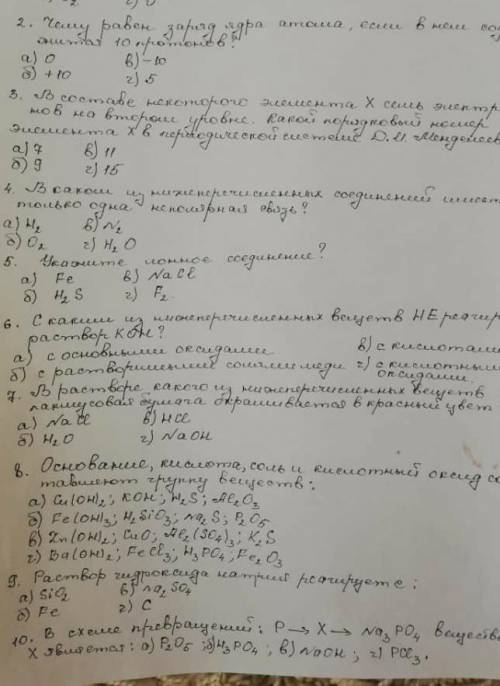 2. Чему равен заряд ядра атома, если в нем со
жится 10 протонов?
а) 0 в) -10
б) +10 г) 5
3. В составе некоторого элемента Х семь электр
нов на втором уровне. Какой порядковый номер
элемента Х в периодической системе Д.И. Менделеев
а) 7 в) 11
б) 9 г) 15
4. В каком из нижеперечисленных соединений имеет
только одна неполярная связь?
а) H2 в) N2
б) O2 г) H2O
5. Укажите ионное соединение?
а) Fe в) NaCl
б) H2S г) F2.
6. С каким из нижеперечисленных веществ НЕ реагир
раствор KOH?
а) с основными оксидами в) с кислотами
б) с растворимыми солями меди г) с кислотными
оксидами.
7. В растворе какого из нижеперечисленных веществ
лакмусовая бумага окрашивается в красный цвет
а) NaCl в) HCl
б) H2O г) NaOH
8. Основание, кислота, соль и кислотный оксид со
тавляют группу веществ:
а) Cu(OH)2; KOH; H2S; Al2O3
б) Fe(OH)3; H2SiO3; Na2S; P2O5
в) Zn(OH)2; CuO; Al2(SO4)3; K2S
г) Ba(OH)2; FeCl3; H3PO4; Fe2O3
9. Раствор гидроксида натрия реагирует:
а) SiO2 в) Na2SO4
б) Fe г) C
10. В схеме превращений: P → X → Na3PO4 вещество
X является: а) P2O5; б) H3PO4; в) NaOH; г) PCl3.